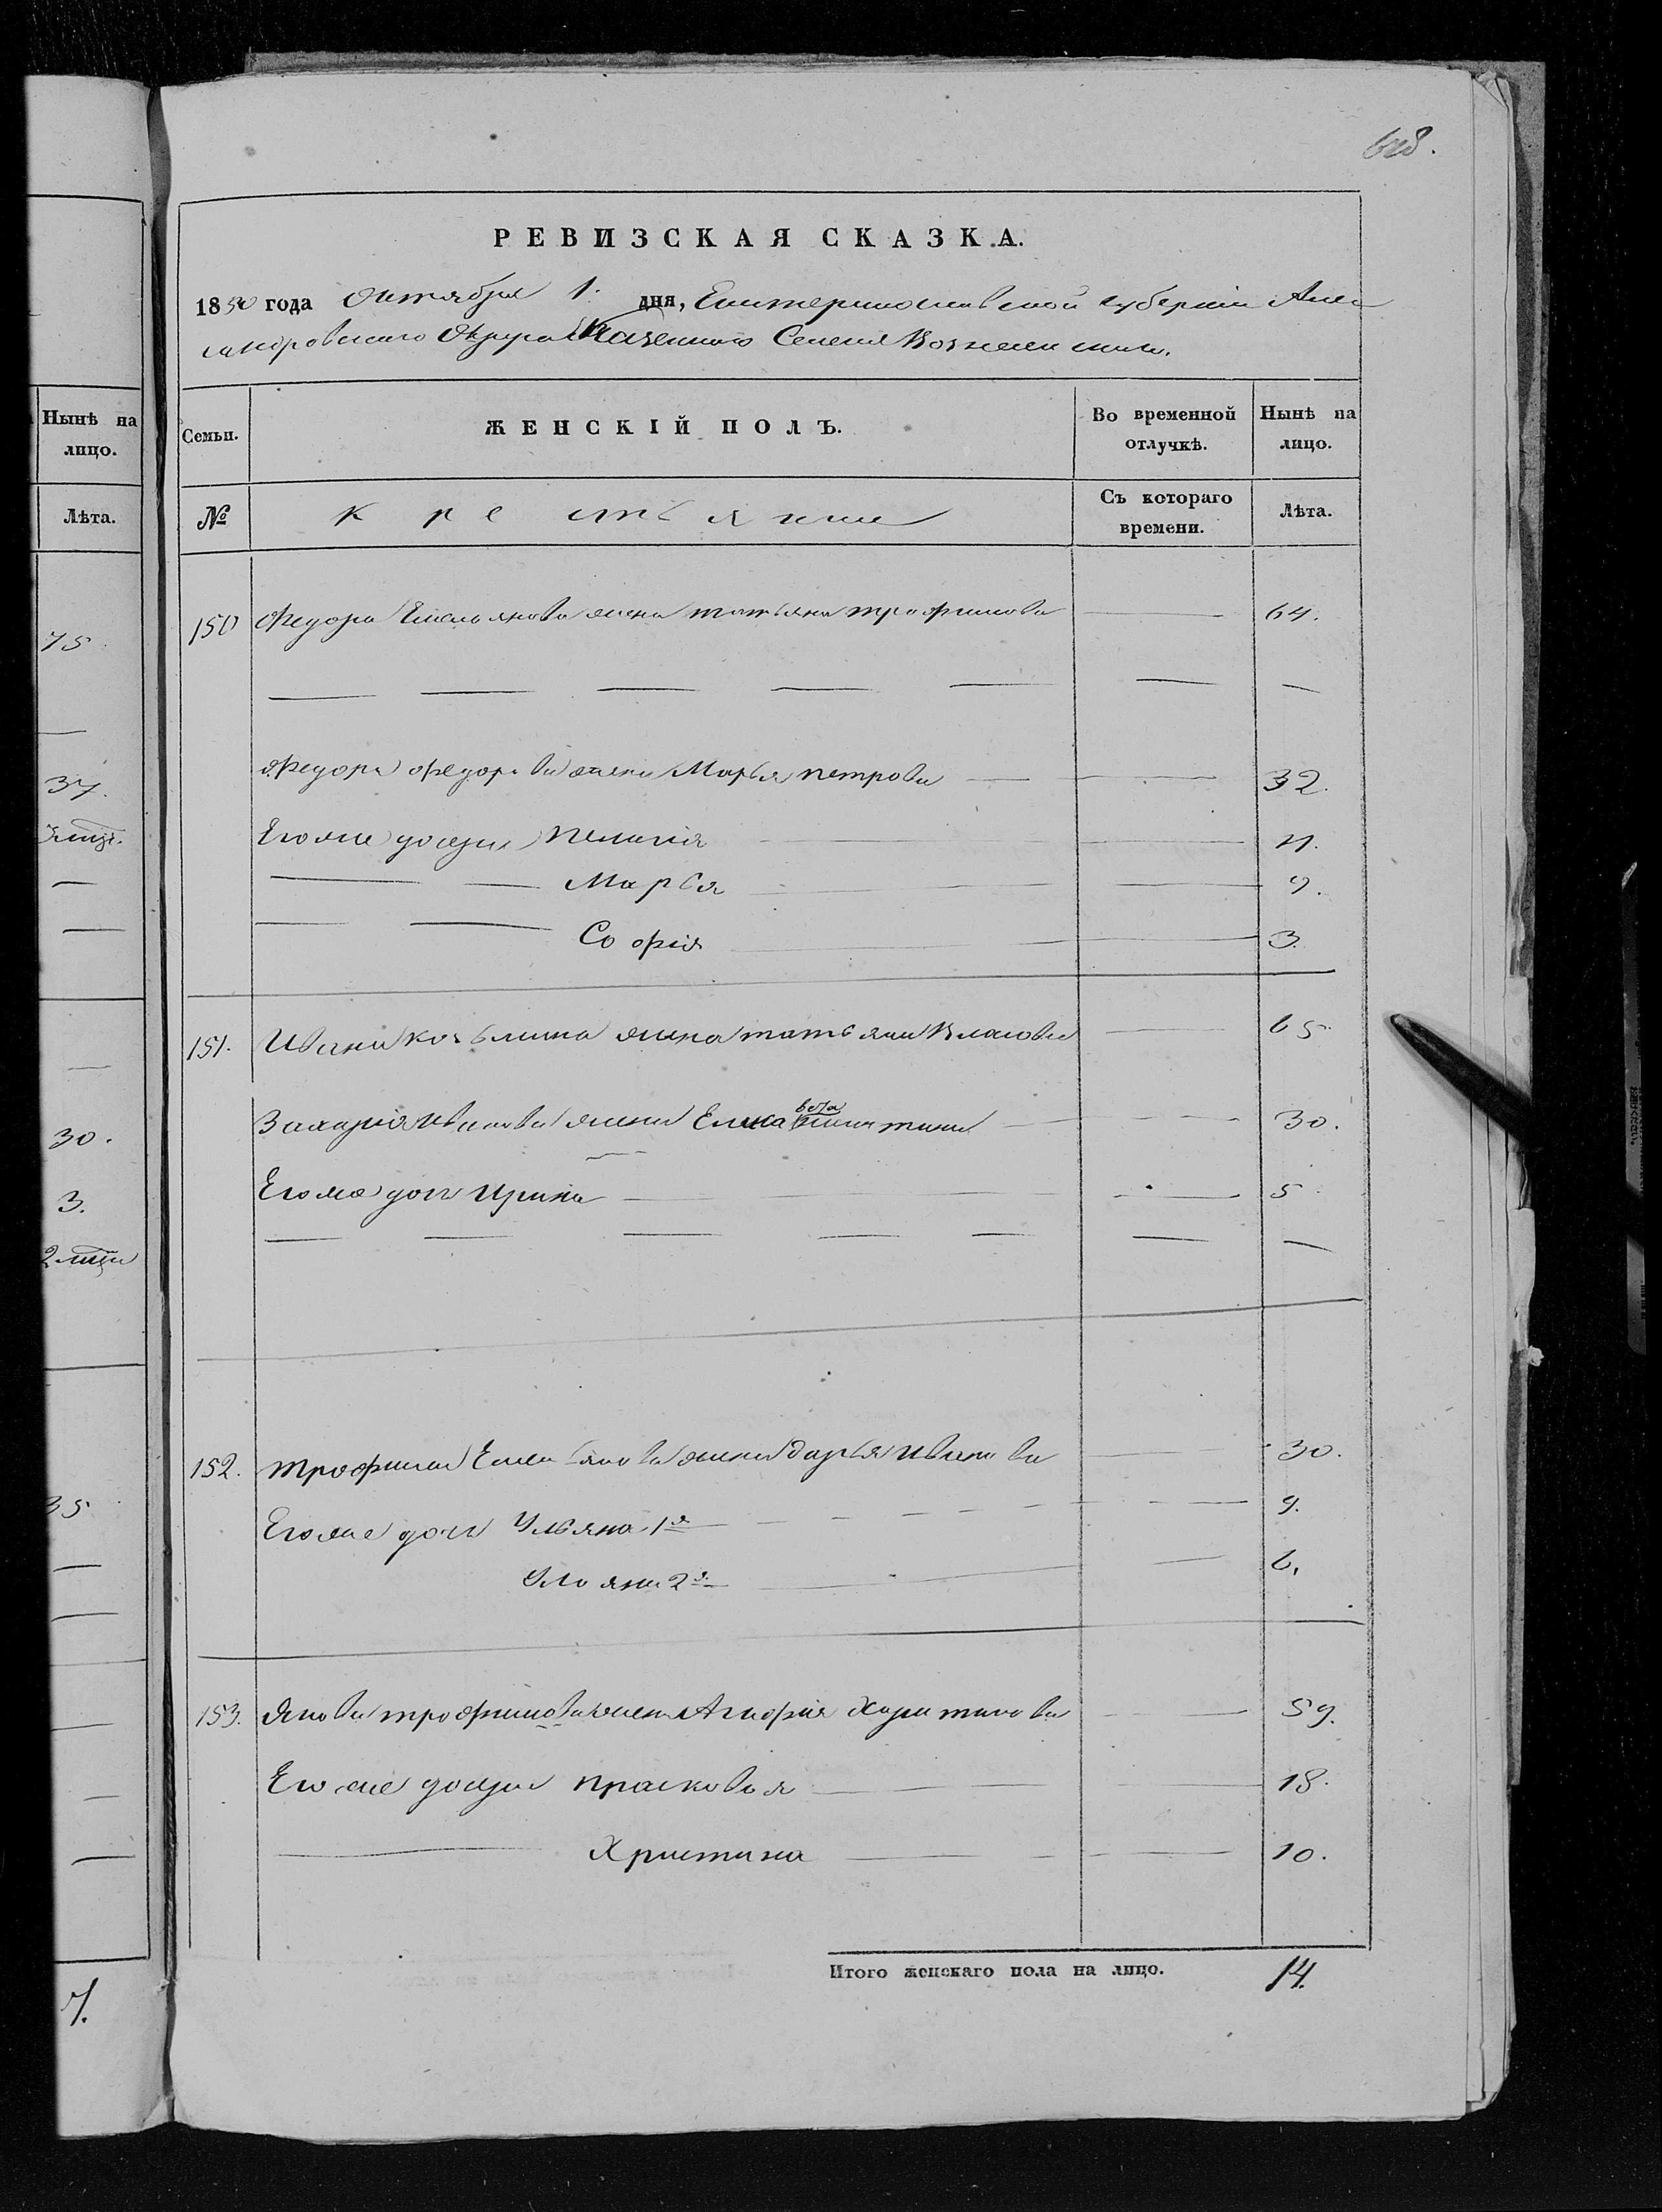 628.
РЕВИЗСКАЯ СКАЗКА.
1850 года Октября 1. дня, Екатеринославской губернiи Алек
сандровского Округа Казенного Селенiя Вознесенского.
Нынѣ на лицо.
Семьи.
ЖЕНСКІЙ ПОЛЪ.
Во временной отлучкѣ.
Нынѣ на лицо.
Лѣта.
№
крестьяне
Съ котораго времени.
Лѣта.
75
150 Федора Емельянова жена татьяна трофимова 64.
37. Федора Федорова жена Марья петрова 32.
Его же дочери Пелагiя 11.
Марья 9.
Софiя 3.
151. Ивана козьмина жена татьяна Власова 65.
30. Захарiя Иванова жена 30.
3. Его же дочь Ирина 5
152. трофима Емельянова жена дарья Иванова 30.
35 Его же дочь Ульяна 1я 9.
Ульяна 2я 6.
153. Якова трофимова жена Агафiя Харитонова 59.
Его же дочери прасковья 18.
Христина 10.
7. Итого женскаго пола на лицо. 14.